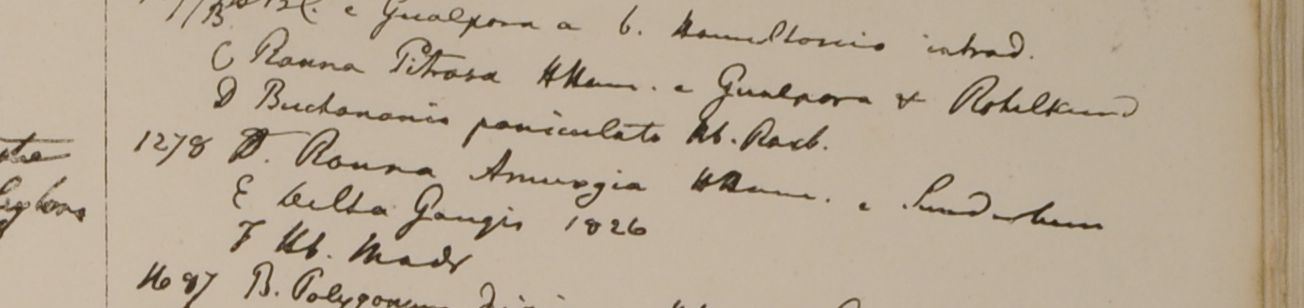 e Gualpara a b. Hamiltonio introd.
C Rouna Pitrasa HHam. e Gualpara & Rohilkund
D Buchanania paniculata Hb. Roxb.
1278 D. Rouna Amurgia HHam. e Sunderbun
E Delta Gangis 1826
F Hb. Madr
B. Polygonum